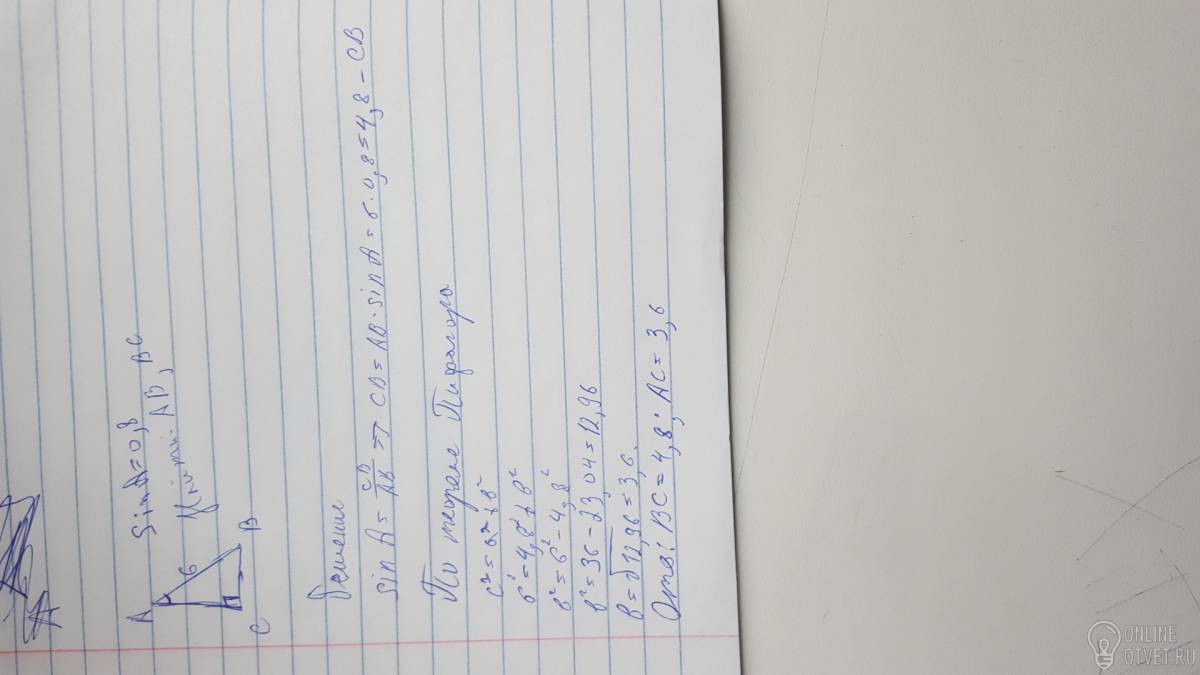 A
6
C
B
Sin A = 0,8
Найти: AB, BC
Решение
sin A = CB/AB => CB = AB · sin A = 6 · 0,8 = 4,8 - CB
По теореме Пифагора
c² = a² + b²
6² = 4,8² + b²
b² = 6² - 4,8²
b² = 36 - 23,04 = 12,96
b = √12,96 = 3,6.
Отв: BC = 4,8; AC = 3,6
ONLINE
OTVET.RU